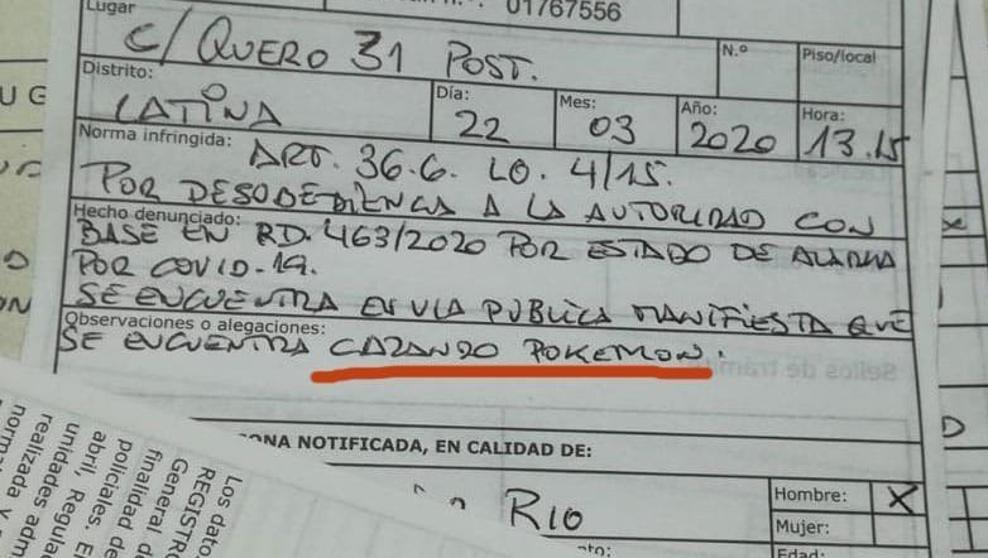 Lugar
01767556
C/ QUERO 31 POST.
N.º
Piso/local
Distrito:
LATINA
Día:
22
Mes:
03
Año:
2020
Hora:
13.15
Norma infringida:
ART. 36.6. LO. 4/15.
POR DESOBEDIENCIA A LA AUTORIDAD CON
Hecho denunciado:
BASE EN RD. 463/2020 POR ESTADO DE ALARMA
POR COVID-19.
SE ENCUENTRA EN VIA PUBLICA MANIFIESTA QUE
Observaciones o alegaciones:
SE ENCUENTRA CAZANDO POKEMON.
Sellos de
ONA NOTIFICADA, EN CALIDAD DE:
RIO
Hombre:
X
Mujer:
Edad:
Los datos
REGISTRO
General de
finalidad de
policiales. E
abril, Regula
unidades adm
realizada y
norma